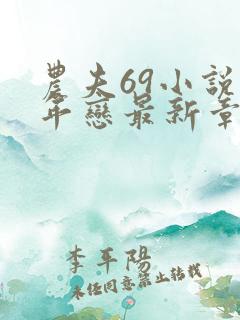 農夫69小說
年戀最新章
李平陽
未經同意禁止轉載